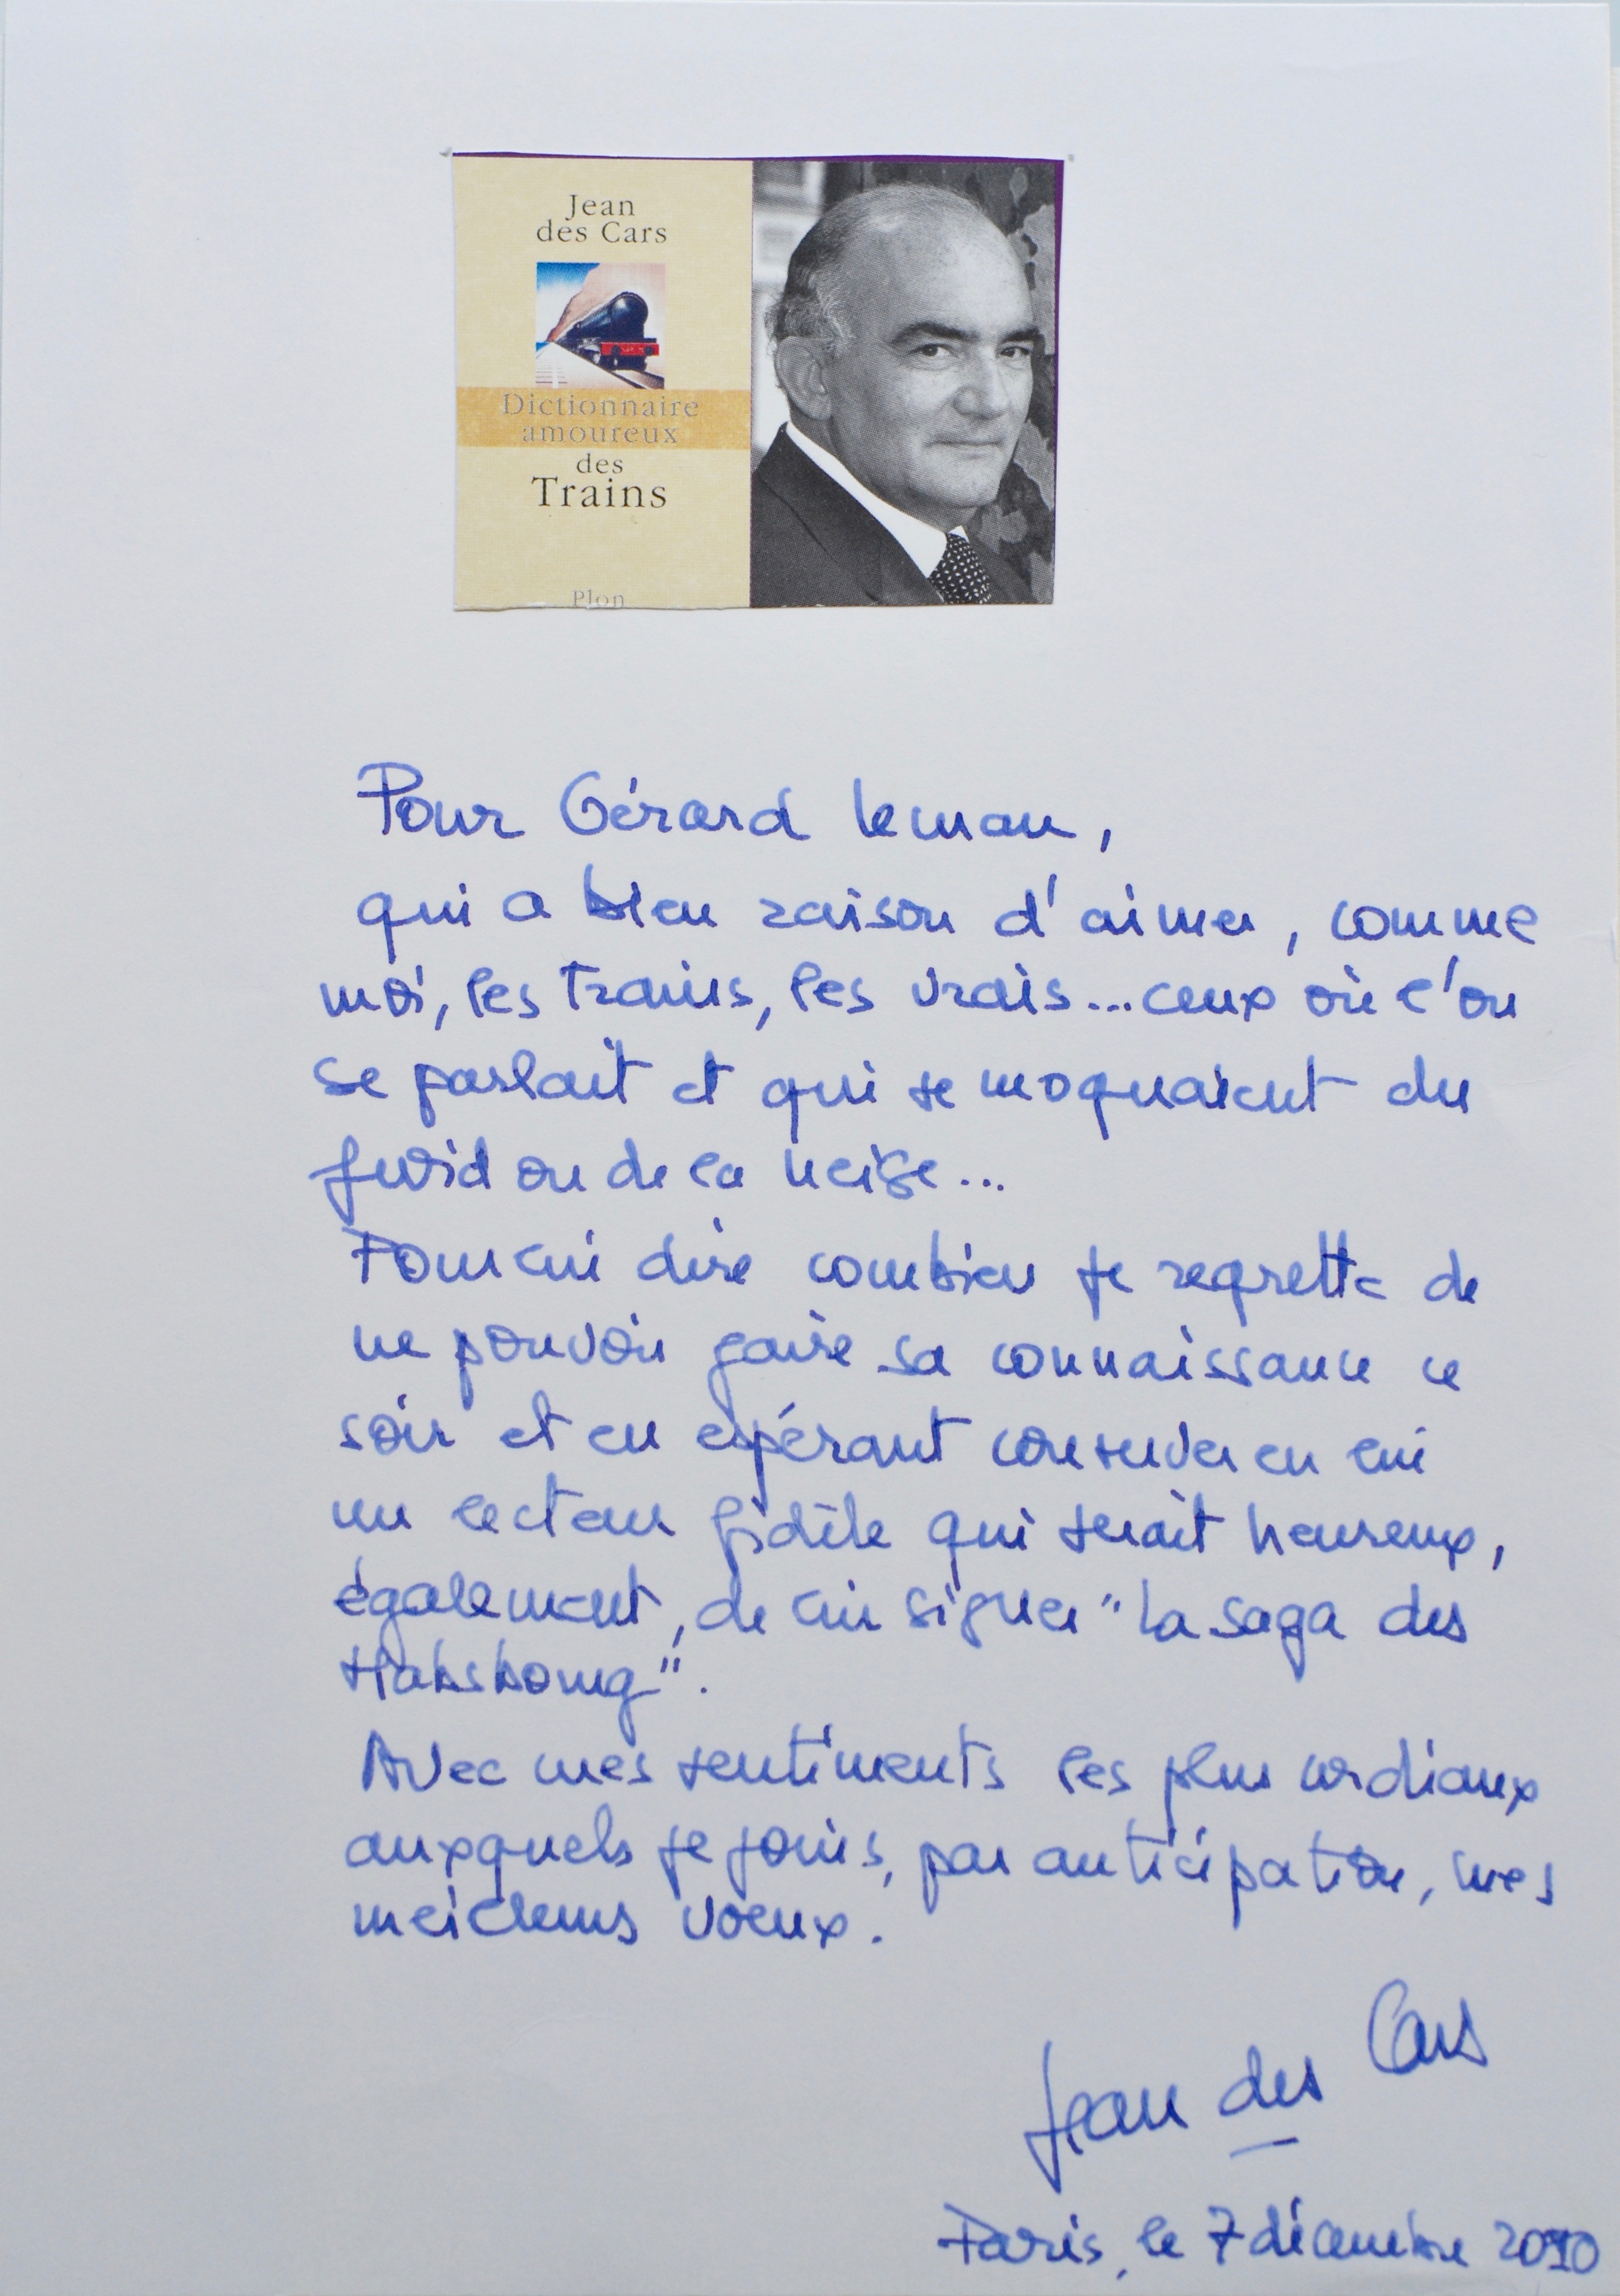 Jean
des Cars
Dictionnaire
amoureux
des
Trains
Plon
Pour Gérard Leman,
qui a bien raison d'aimer, comme
moi, les trains, les vrais... ceux où l'on
se parlait et qui se moquaient du
froid ou de la neige...
Pour lui dire combien je regrette de
ne pouvoir faire sa connaissance ce
soir et en espérant conserver en lui
un lecteur fidèle qui serait heureux,
également, de lui signer "La saga des
Habsbourg".
Avec mes sentiments les plus cordiaux
auxquels je joins, par anticipation, mes
meilleurs voeux.
Jean des Cars
Paris, le 7 décembre 2010